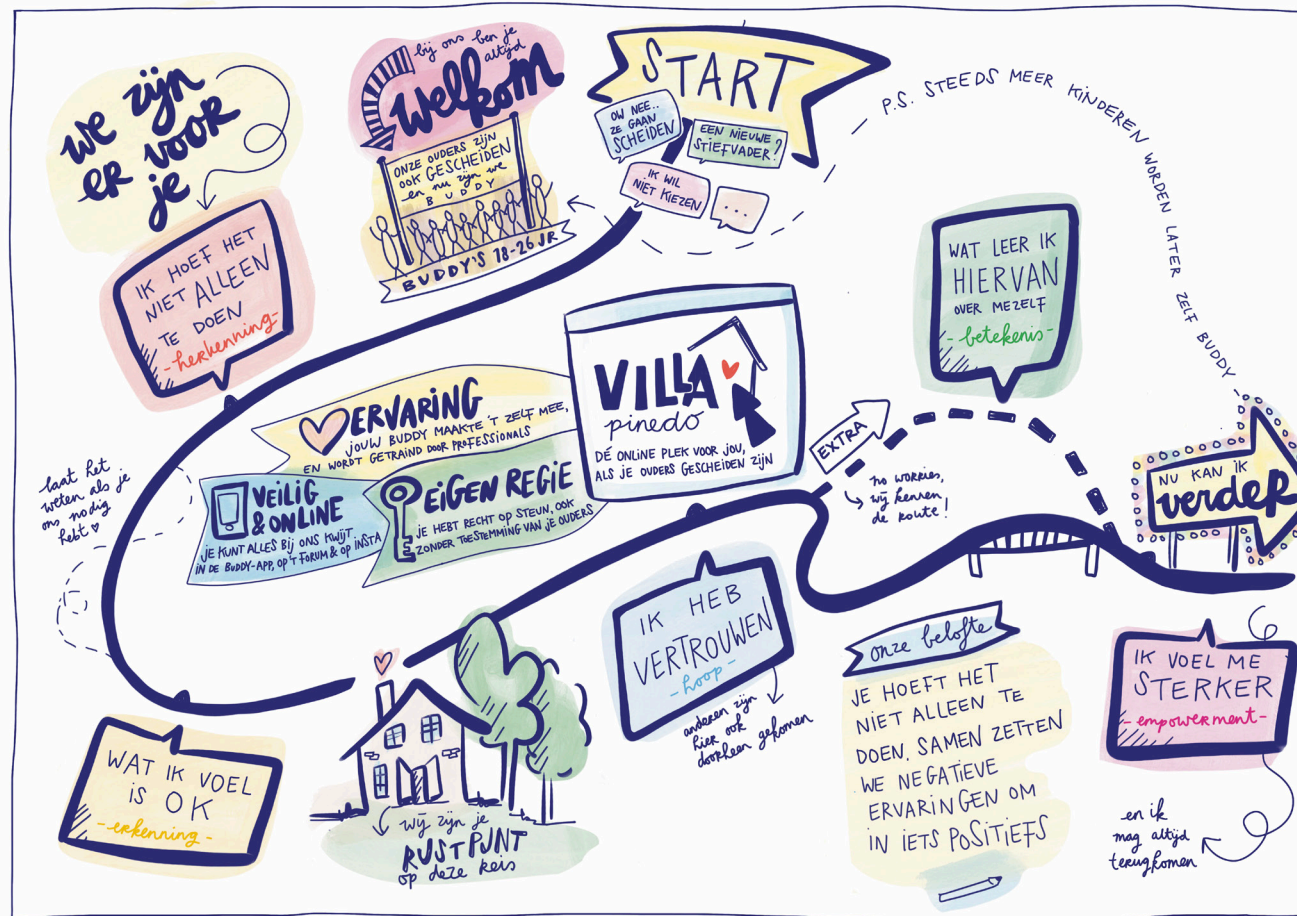 we zijn
er voor
je
bij ons ben je
altijd
welkom
ONZE OUDERS ZIJN
OOK GESCHEIDEN
en nu zijn we
BUDDY
BUDDY'S 18-26 JR
START
OW NEE..
ZE GAAN
SCHEIDEN
EEN NIEUWE
STIEFVADER?
IK WIL
NIET KIEZEN
...
P.S. STEEDS MEER KINDEREN WORDEN LATER ZELF BUDDY
IK HOEF HET
NIET ALLEEN
TE DOEN
-herkenning-
WAT LEER IK
HIERVAN
OVER MEZELF
-betekenis-
VILLA
pinedo
DÉ ONLINE PLEK VOOR JOU,
ALS JE OUDERS GESCHEIDEN ZIJN
ERVARING
JOUW BUDDY MAAKTE 'T ZELF MEE,
EN WORDT GETRAIND DOOR PROFESSIONALS
VEILIG
& ONLINE
JE KUNT ALLES BIJ ONS KWIJT.
IN DE BUDDY-APP, OP 'T FORUM & OP INSTA
EIGEN REGIE
JE HEBT RECHT OP STEUN, OOK
ZONDER TOESTEMMING VAN JE OUDERS
laat het
weten als je
ons nodig
hebt
EXTRA
no worries,
wij kennen
de route!
NU KAN IK
verder
IK HEB
VERTROUWEN
-hoop-
anderen zijn
hier ook
doorheen gekomen
onze belofte
JE HOEFT HET
NIET ALLEEN TE
DOEN. SAMEN ZETTEN
WE NEGATIEVE
ERVARINGEN OM
IN IETS POSITIEFS
IK VOEL ME
STERKER
-empowerment-
en ik
mag altijd
terugkomen
WAT IK VOEL
IS OK
-erkenning-
wij zijn je
RUSTPUNT
op deze reis